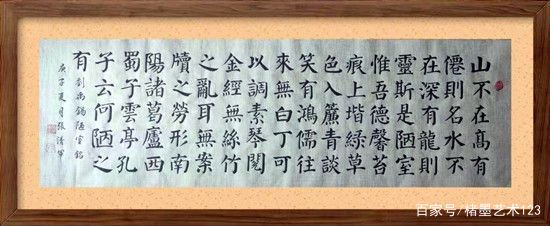 山不在高有
僊則名水不
在深有龍則
靈斯是陋室
惟吾德馨苔
痕上堦綠草
色入簾青談
笑有鴻儒往
來無白丁可
以調素琴閱
金經無絲竹
之亂耳無案
牘之勞形南
陽諸葛廬西
蜀子雲亭孔
子云何陋之
有
劉禹錫陋室銘
庚子夏月張清
百家号/楮墨艺术123